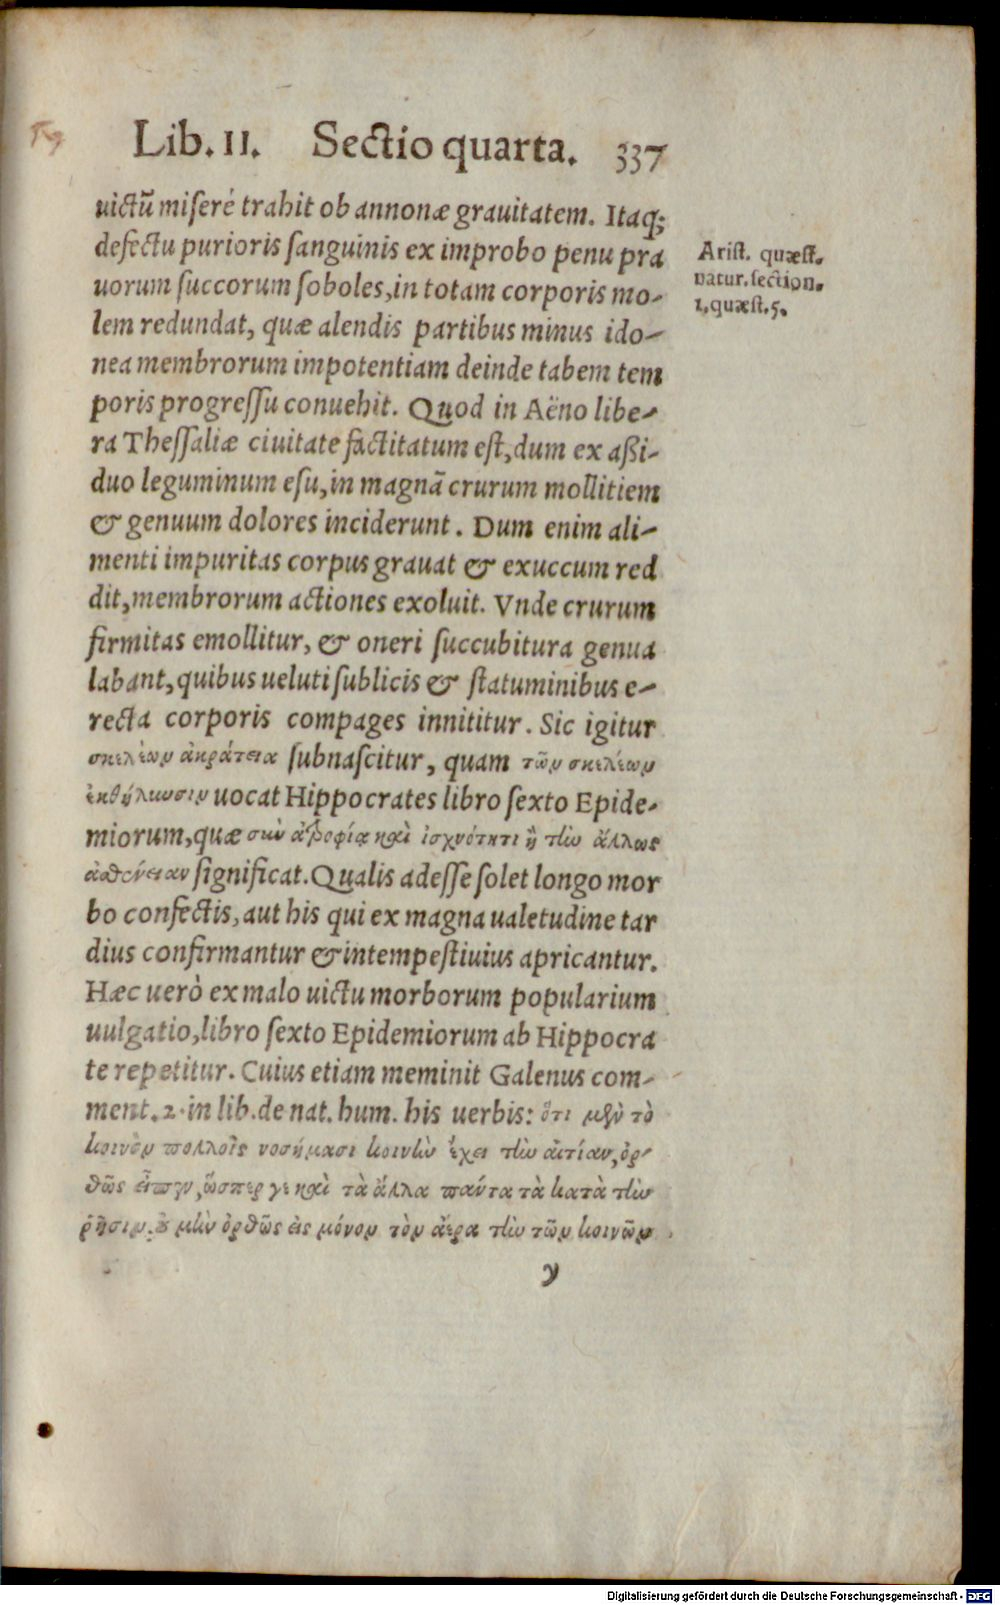 Lib. II. Sectio quarta. 337
uictū miserè trahit ob annonæ grauitatem. Itaq;
defectu purioris sanguinis ex improbo penu pra
uorum succorum soboles, in totam corporis mo-
lem redundat, quæ alendis partibus minus ido-
nea membrorum impotentiam deinde tabem tem
poris progressu conuehit. Quod in Aëno libe-
ra Thessaliæ ciuitate factitatum est, dum ex aßi-
duo leguminum esu, in magnā crurum mollitiem
& genuum dolores inciderunt. Dum enim ali-
menti impuritas corpus grauat & exuccum red
dit, membrorum actiones exoluit. Vnde crurum
firmitas emollitur, & oneri succubitura genua
labant, quibus ueluti sublicis & statuminibus e-
recta corporis compages innititur. Sic igitur
σκελέων ἀκράτεια subnascitur, quam τῶν σκελέων
ἐκθήλυνσιν uocat Hippocrates libro sexto Epide-
miorum, quæ σὺν ἀτροφίᾳ καὶ ἰσχνότητι ἢ τὴν ἄλλως
ἀσθένειαν significat. Qualis adesse solet longo mor
bo confectis, aut his qui ex magna ualetudine tar
dius confirmantur & intempestiuius apricantur.
Hæc uerò ex malo uictu morborum popularium
uulgatio, libro sexto Epidemiorum ab Hippocra
te repetitur. Cuius etiam meminit Galenus com-
ment. 2. in lib. de nat. hum. his uerbis: ὅτι μὲν τὸ
κοινὸν πολλοῖς νοσήμασι κοινὴν ἔχει τὴν αἰτίαν, ὀρ-
θῶς εἶπεν, ὥσπερ γε καὶ τὰ ἄλλα πάντα τὰ κατὰ τὴν
ῥῆσιν. οὐ μὴν ὀρθῶς εἰς μόνον τὸν ἀέρα τὴν τῶν κοινῶν
y
Arist. quæst.
natur. section.
1. quæst. 5.
Digitalisierung gefördert durch die Deutsche Forschungsgemeinschaft - DFG